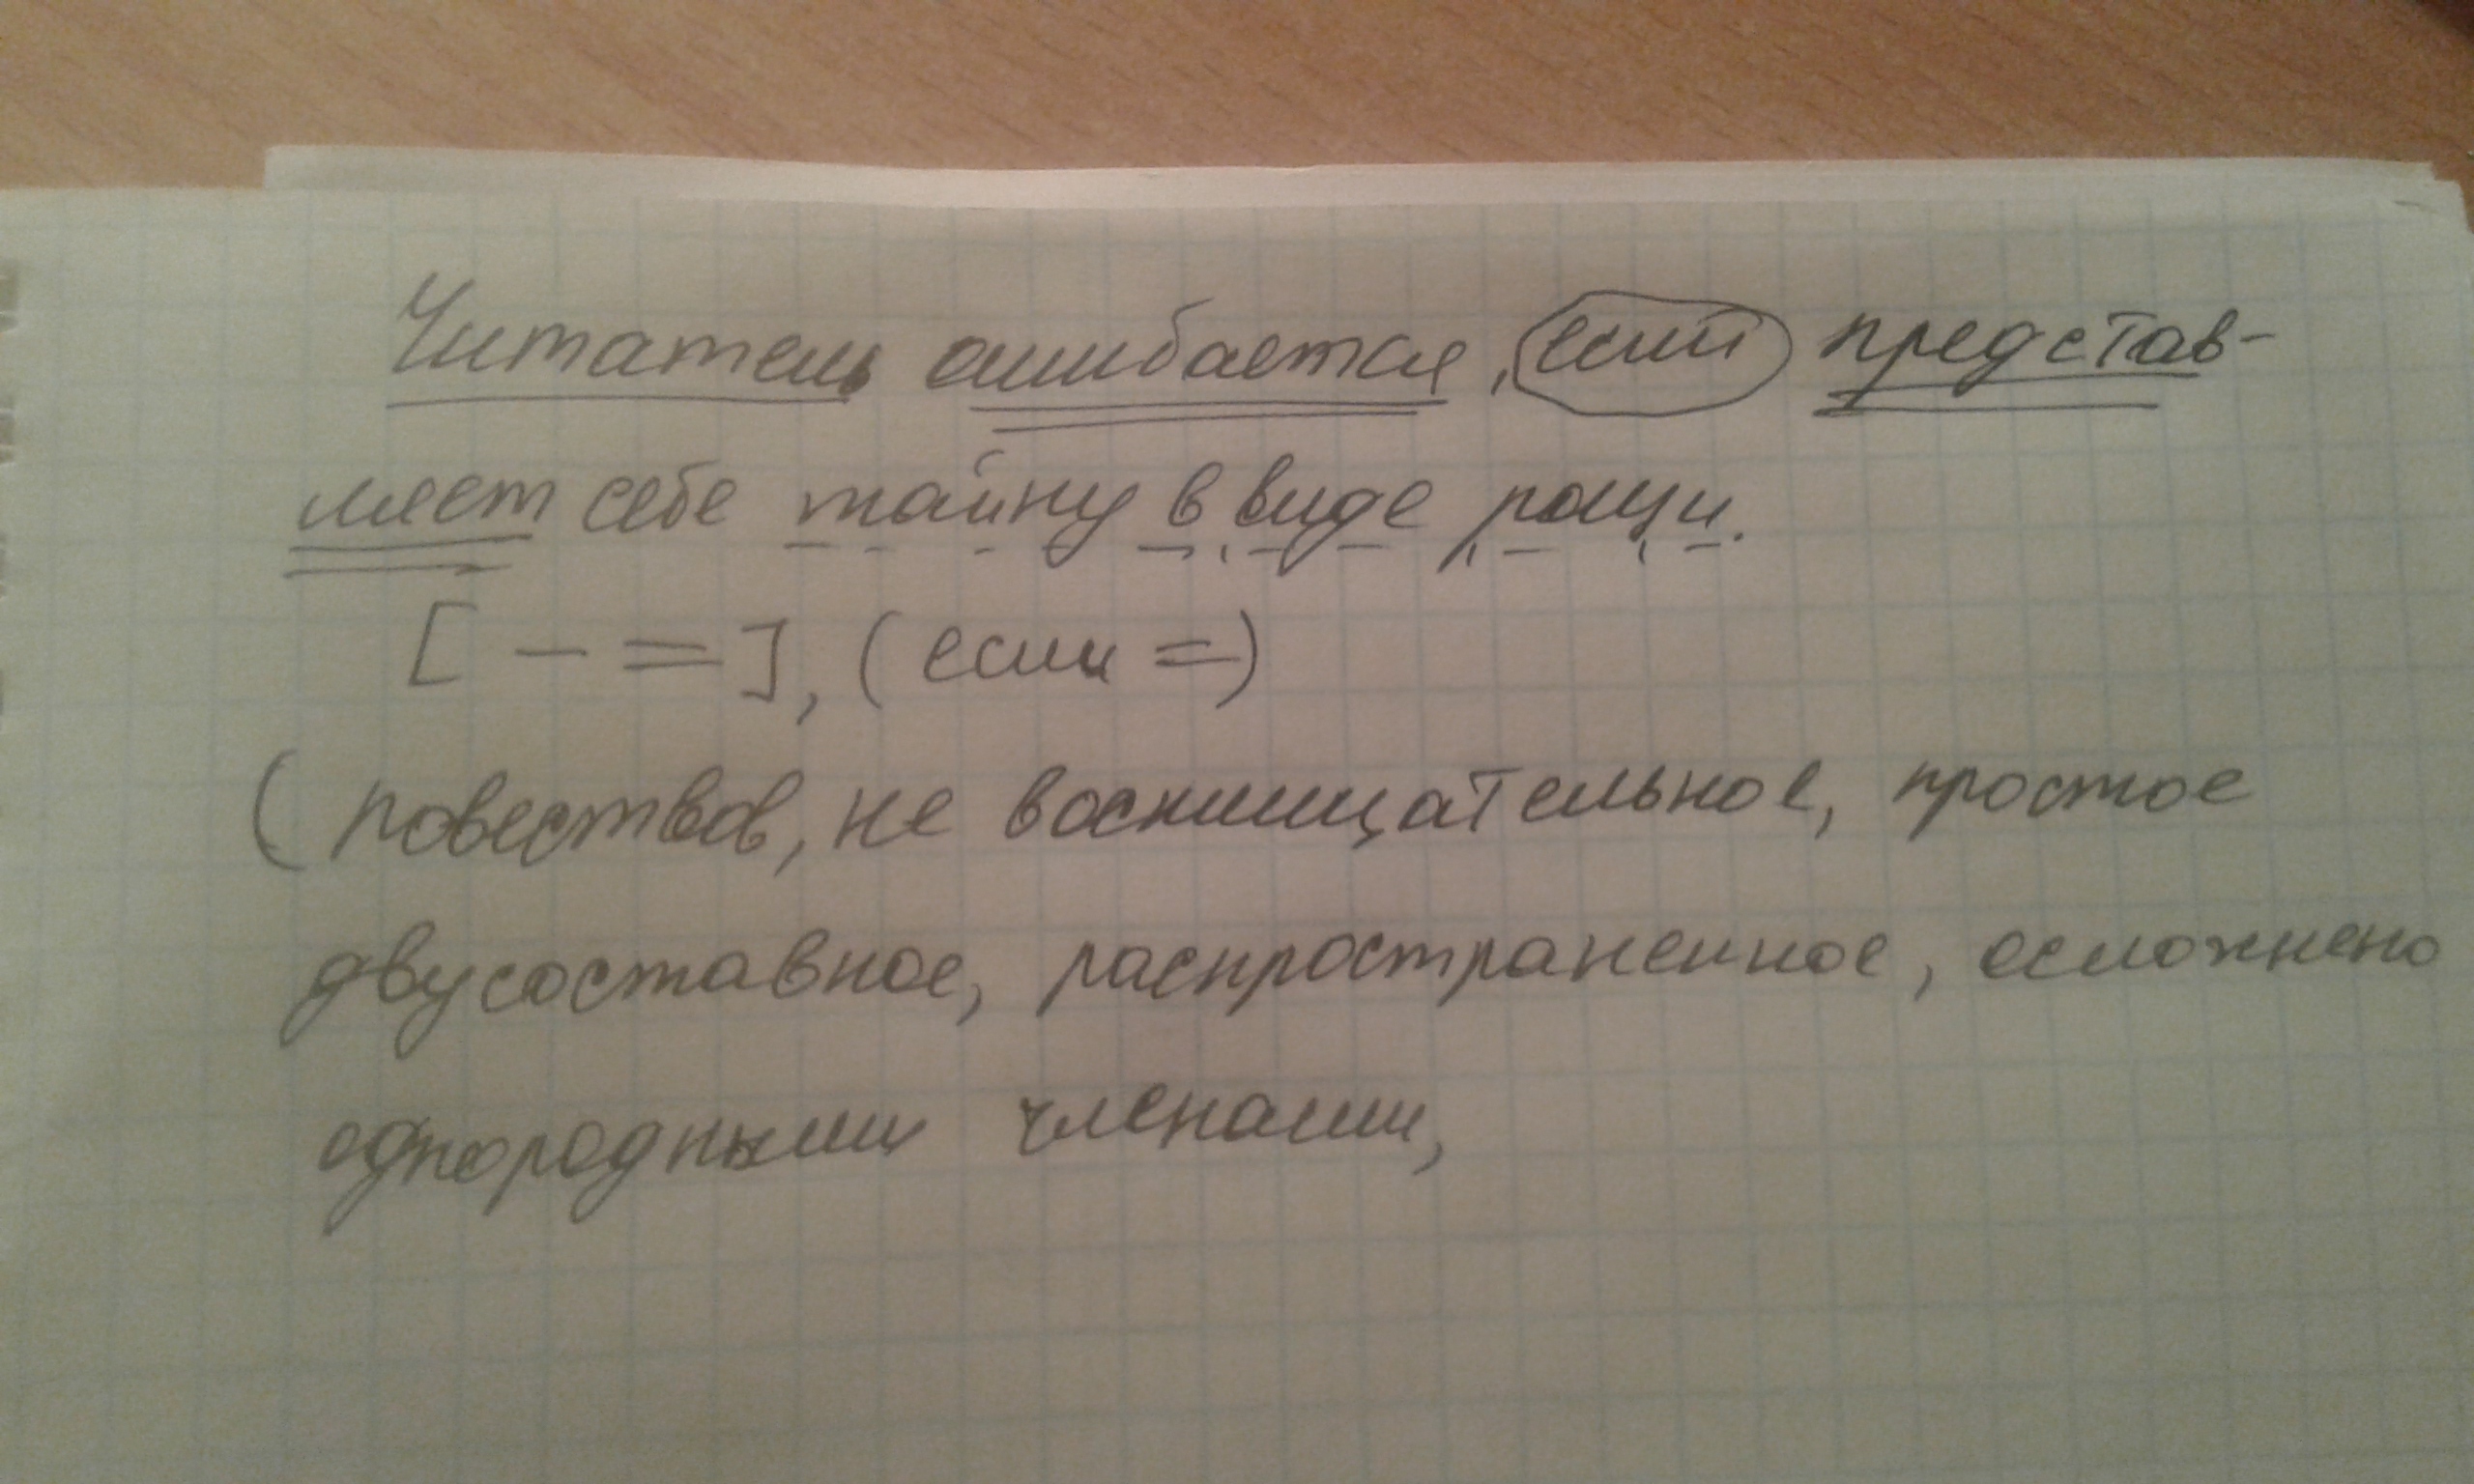 Читатель ошибается, если представ-
ляет себе тайну в виде рощи.
[ - = ], (если =)
(повествов, не восклицательное, простое
двусоставное, распространенное, осложнено
однородными членами,